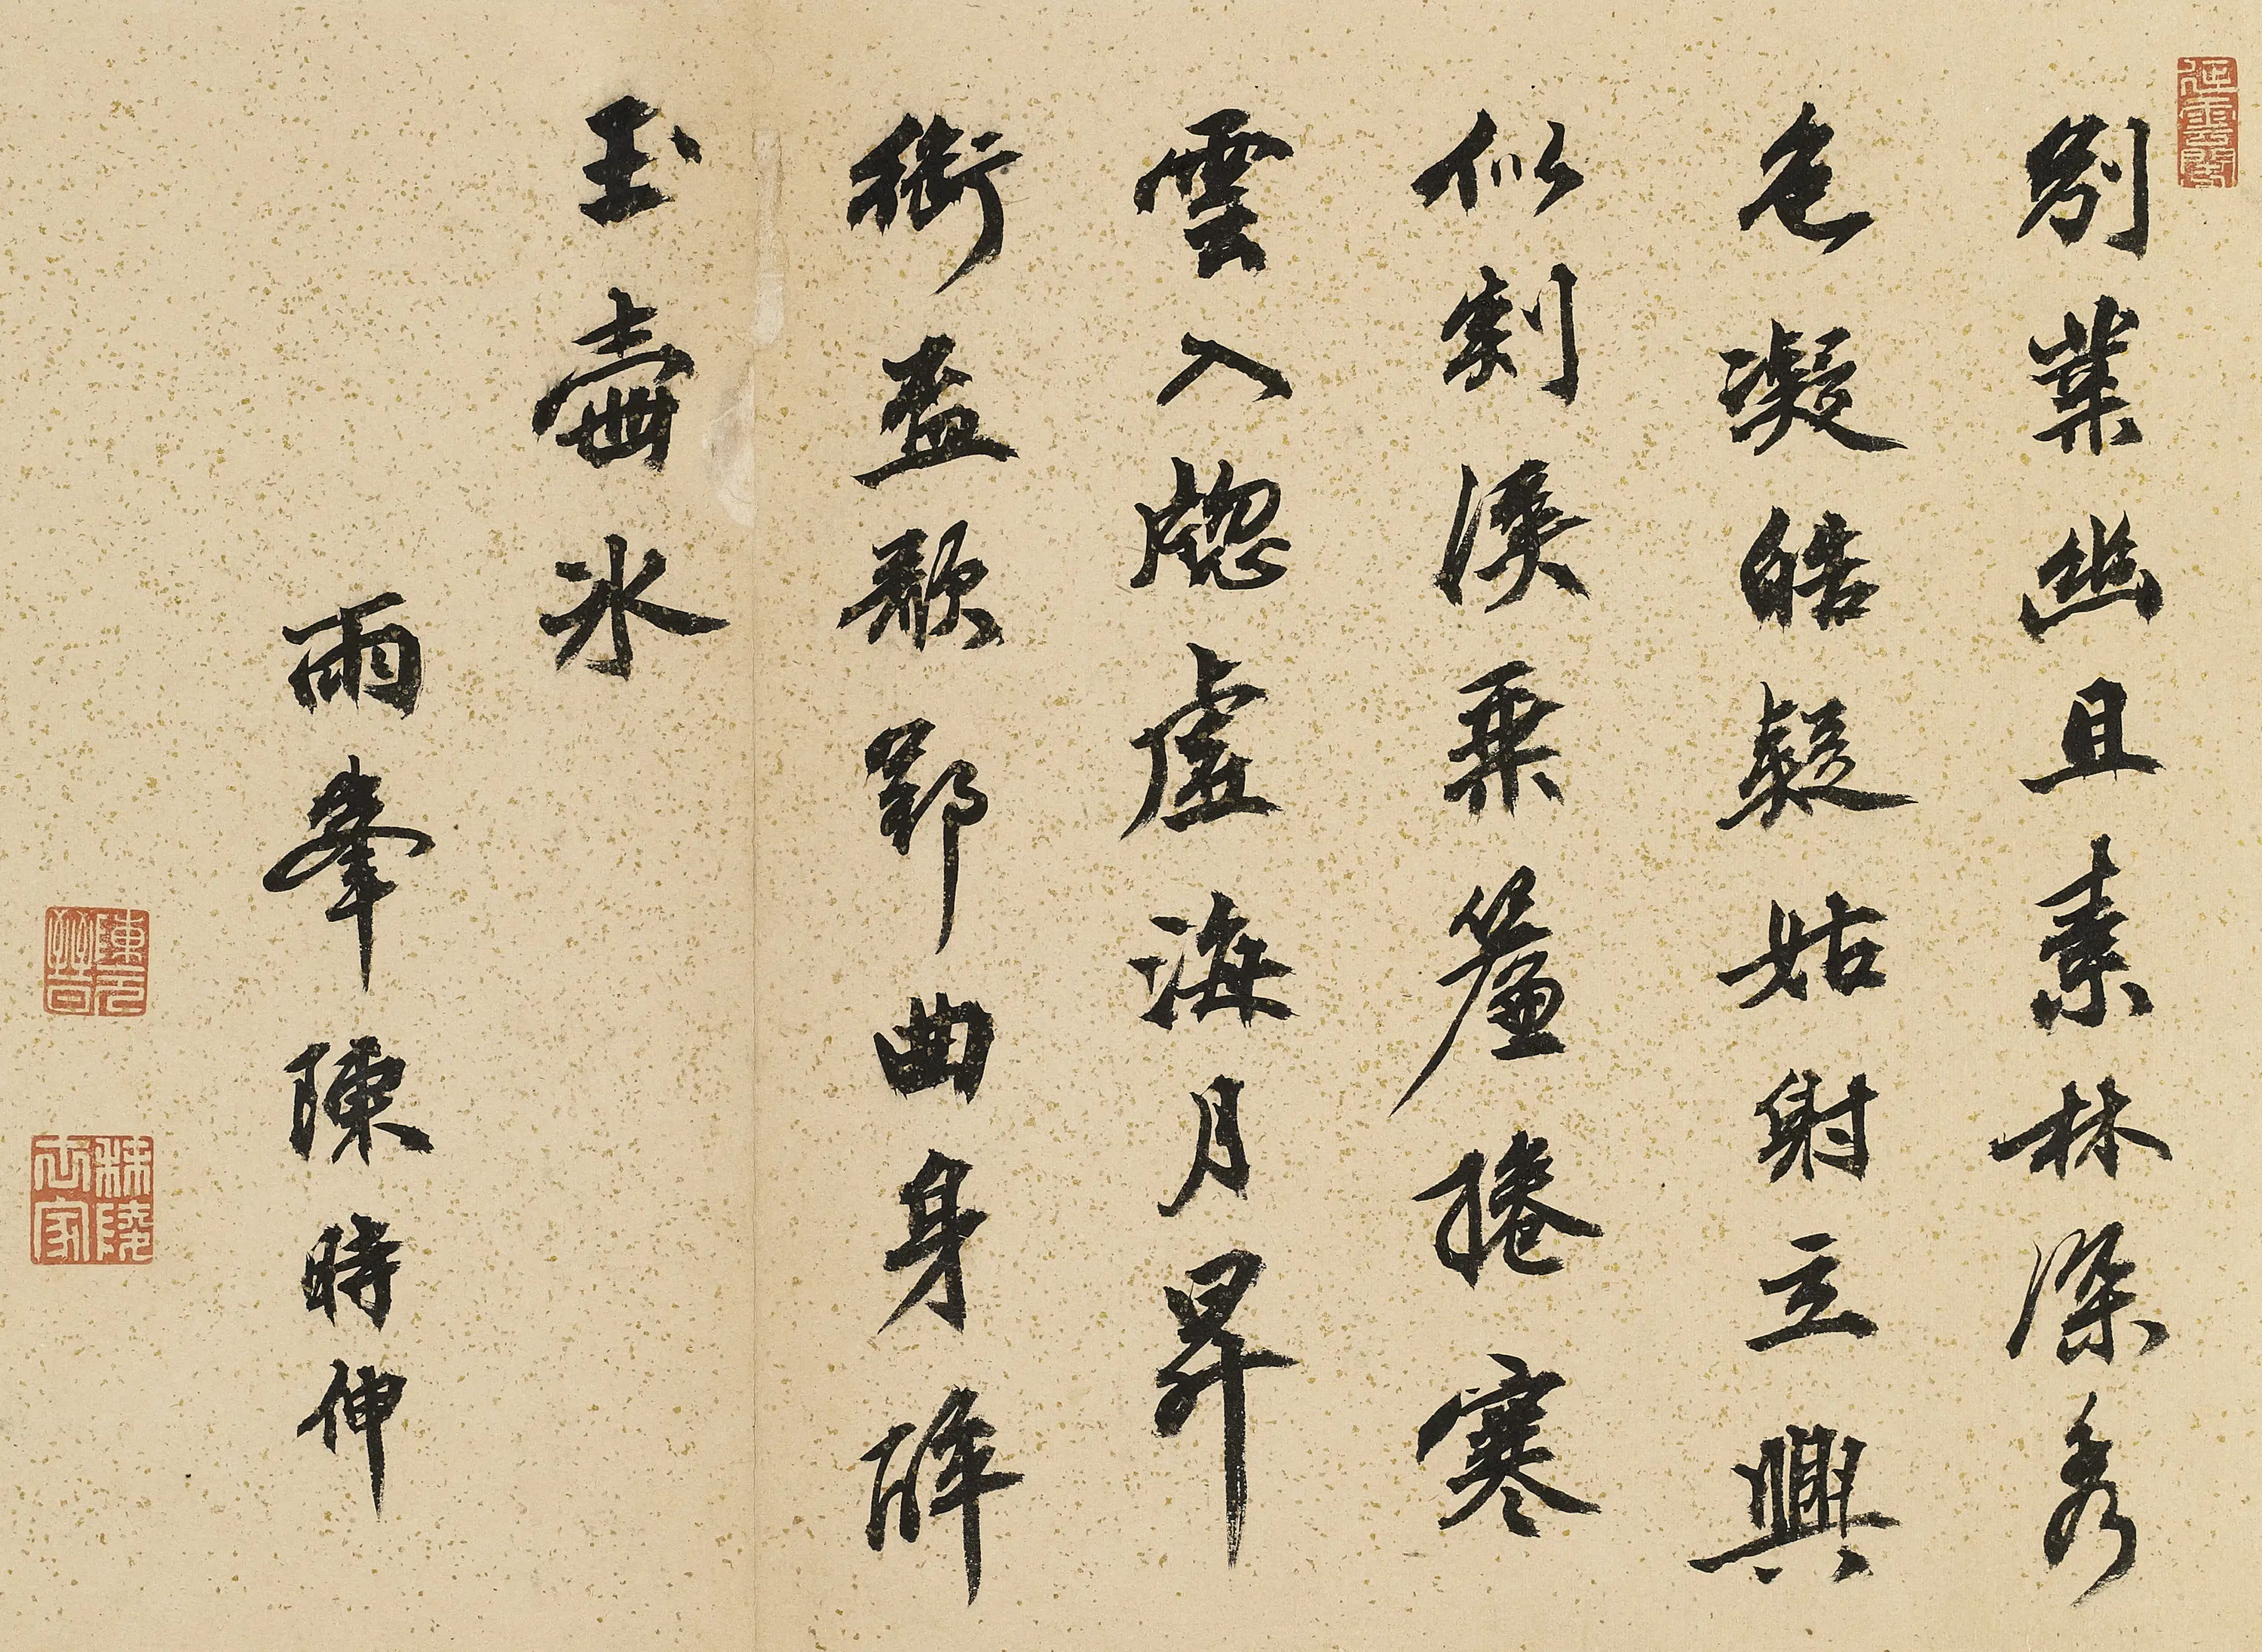 別業幽且素林深秀
色凝皓疑姑射立興
似剡溪乘簾捲寒
雲入牕虛海月昇
銜盃歌郢曲身醉
玉壺冰
雨峯陳時伸